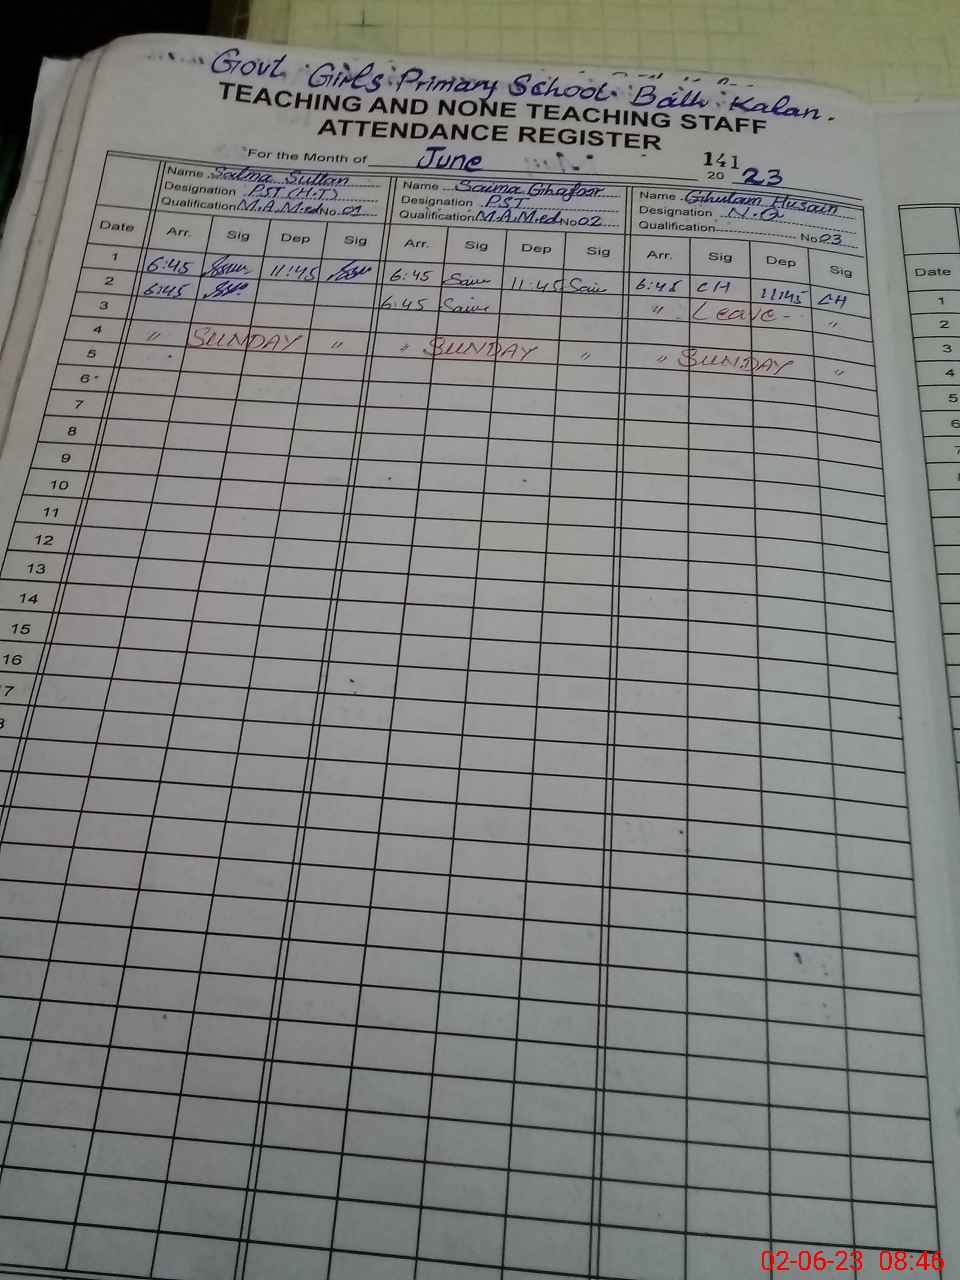 Govt Girls Primary School Bath Kalan.
TEACHING AND NONE TEACHING STAFF
ATTENDANCE REGISTER
141
For the Month of June 20 23
Name Salma Sultan Name Saima Ghafoor Name Ghulam Husain
Designation PST (H.T) Designation PST Designation N.Q
Qualification M.A.M.ed No. 01 Qualification M.A.M.ed No 02 Qualification No 03
Date Arr. Sig Dep Sig Arr. Sig Dep Sig Arr. Sig Dep Sig Date
1 6:45 11:45 6:45 Saim 11:45 Saim 6:45 GH 11:45 GH 1
2 6:45 6:45 Saim " Leave - " 2
3 3
4 " SUNDAY " " SUNDAY " " SUNDAY " 4
5 5
6 6
7 7
8
9
10
11
12
13
14
15
16
7
02-06-23 08:46